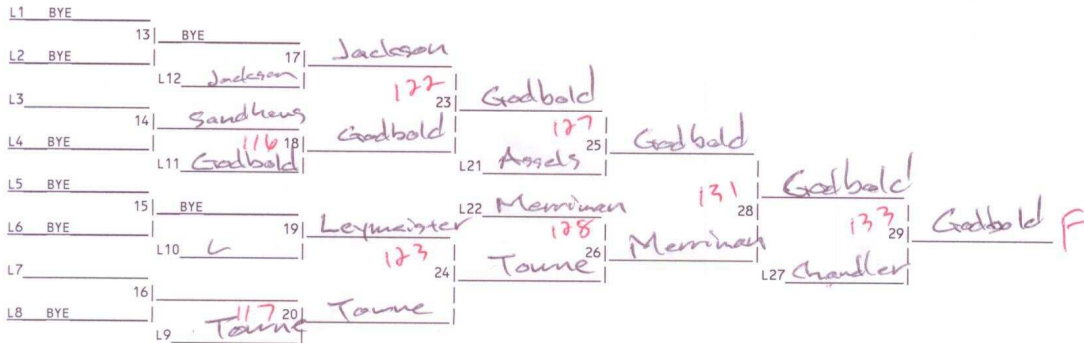 L1 BYE
13 BYE
L2 BYE 17 Jackson
L12 Jackson
122
L3 23 Godbold
14 Sandhaus
127
L4 BYE 116 18 Godbold 25 Godbold
L11 Godbold L21 Assels
L5 BYE 131 Godbold
15 BYE L22 Merriman 28
L6 BYE 19 Leymeister 128 133 29 Godbold F
L10 L 123 26 Merriman
L7 24 Towne L27 Chandler
16
L8 BYE 117 20 Towne
L9 Towne